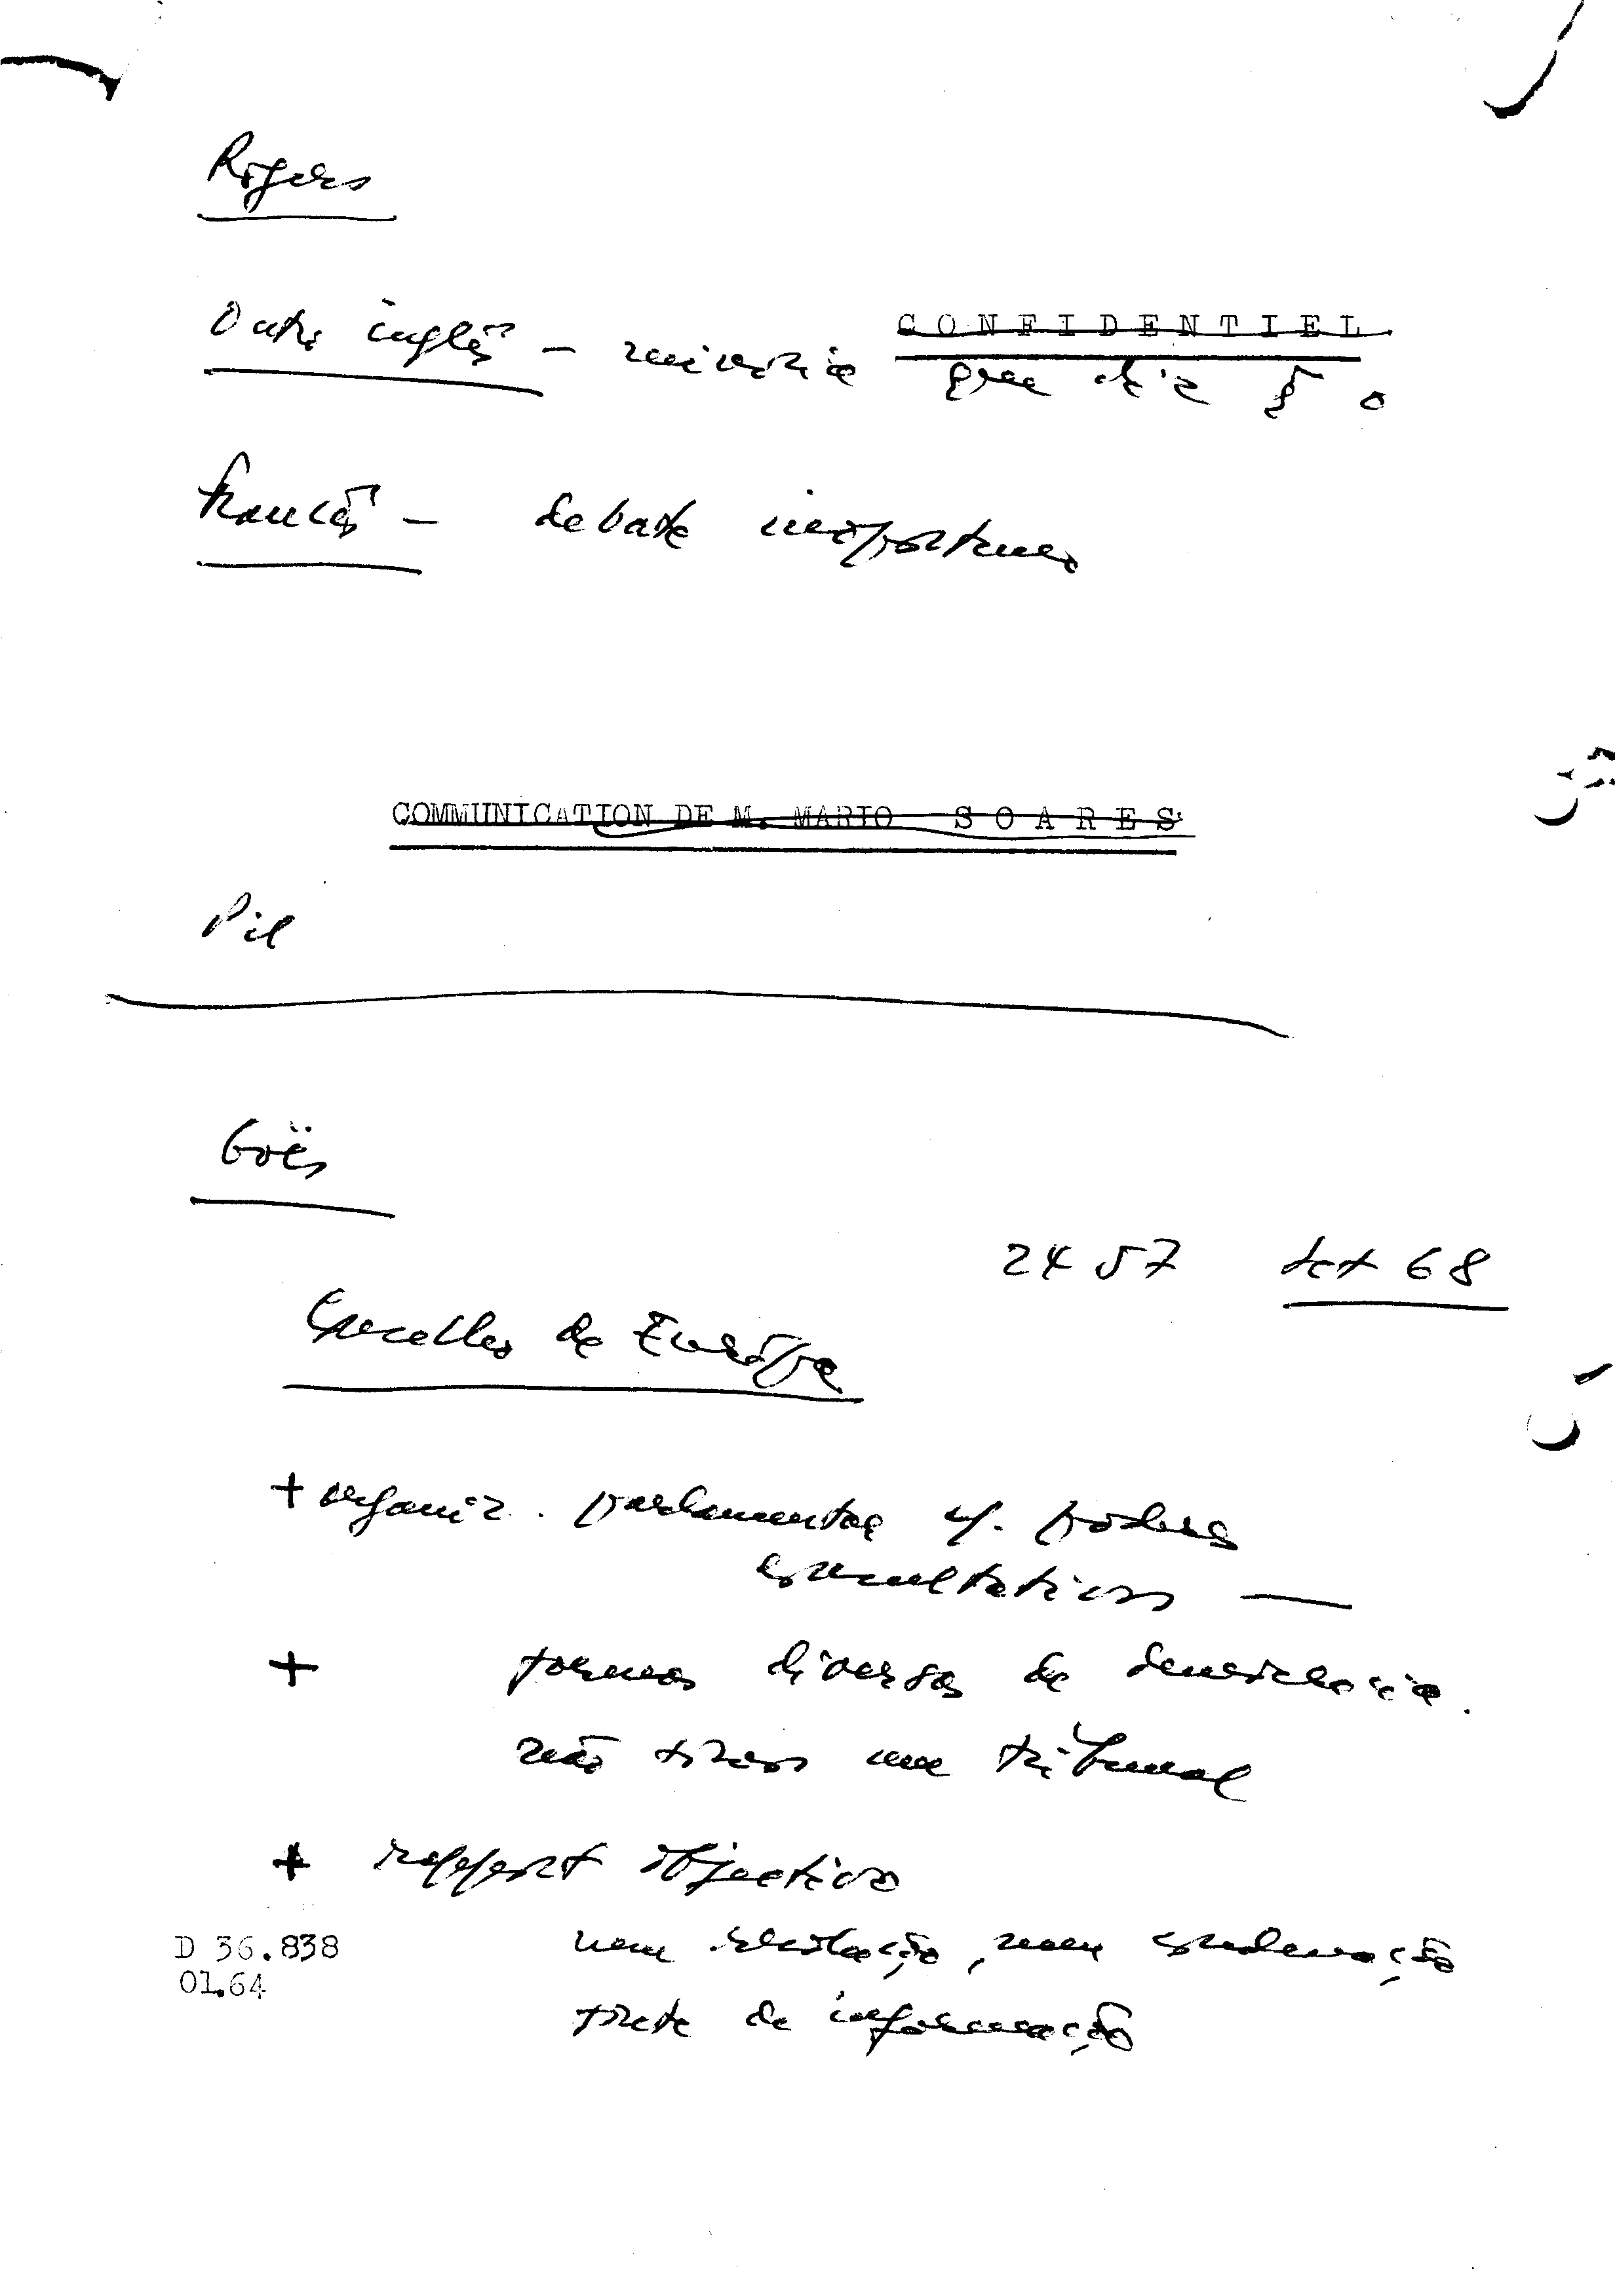 Rogers
CONFIDENTIEL
Outro inglês – minoria que diz § o
francês – debate inoportuno
COMMUNICATION DE M. MARIO SOARES
Pil
Goës
24 57 68
Conselho de Europa
+ organiz. parlamentar c/. poderes
consultativos —
+ formas diversas de democracia.
não somos um tribunal
+ rapport objectivo
nem , nem condenação
D 36.838
01.64
fonte de informação